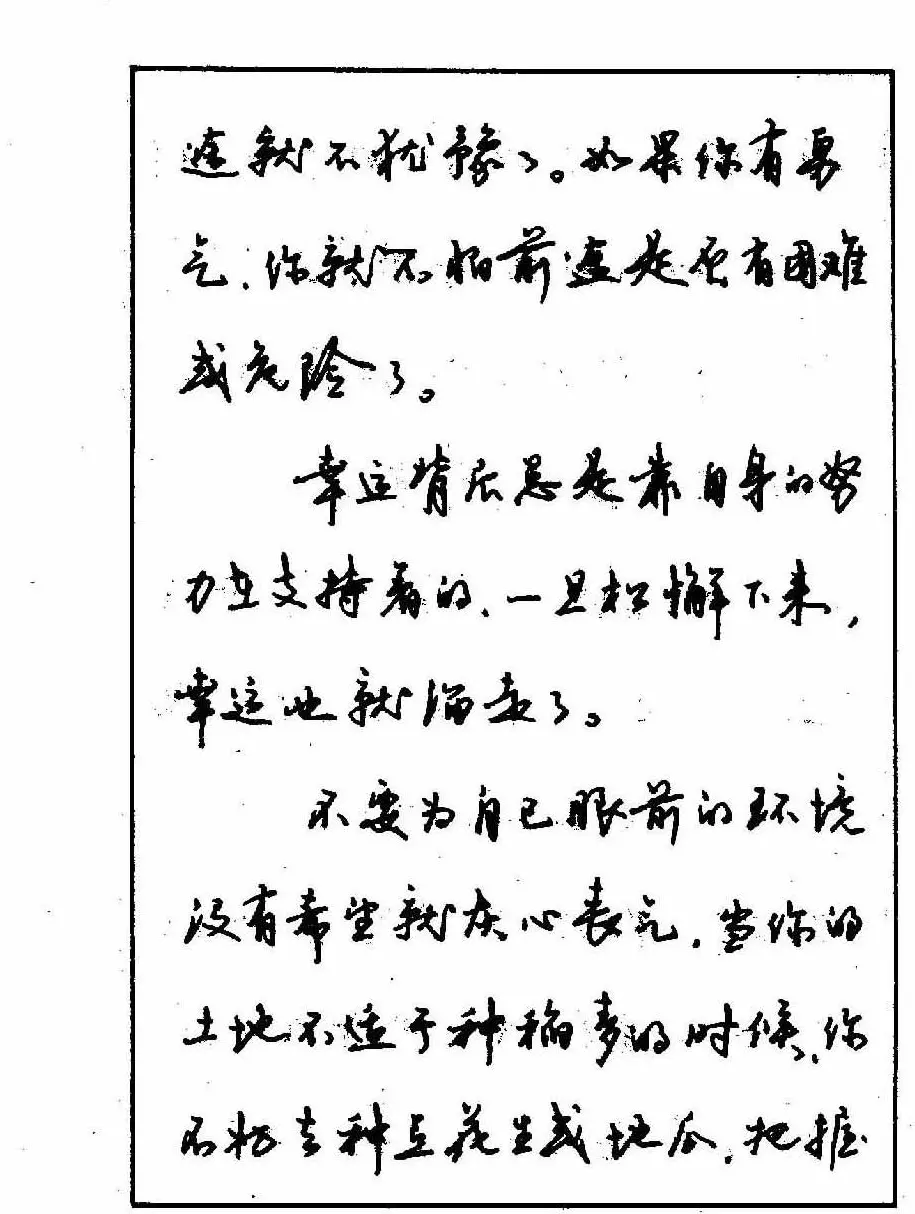 途就不犹豫了。如果你有勇
气,你就不怕前途是否有困难
或危险了。
幸运背后总是靠自身的努
力在支持着的,一旦松懈下来,
幸运也就溜走了。
不要为自己眼前的环境
没有希望就灰心丧气,当你的
土地不适于种稻麦的时候,你
不妨去种点花生或地瓜,把握